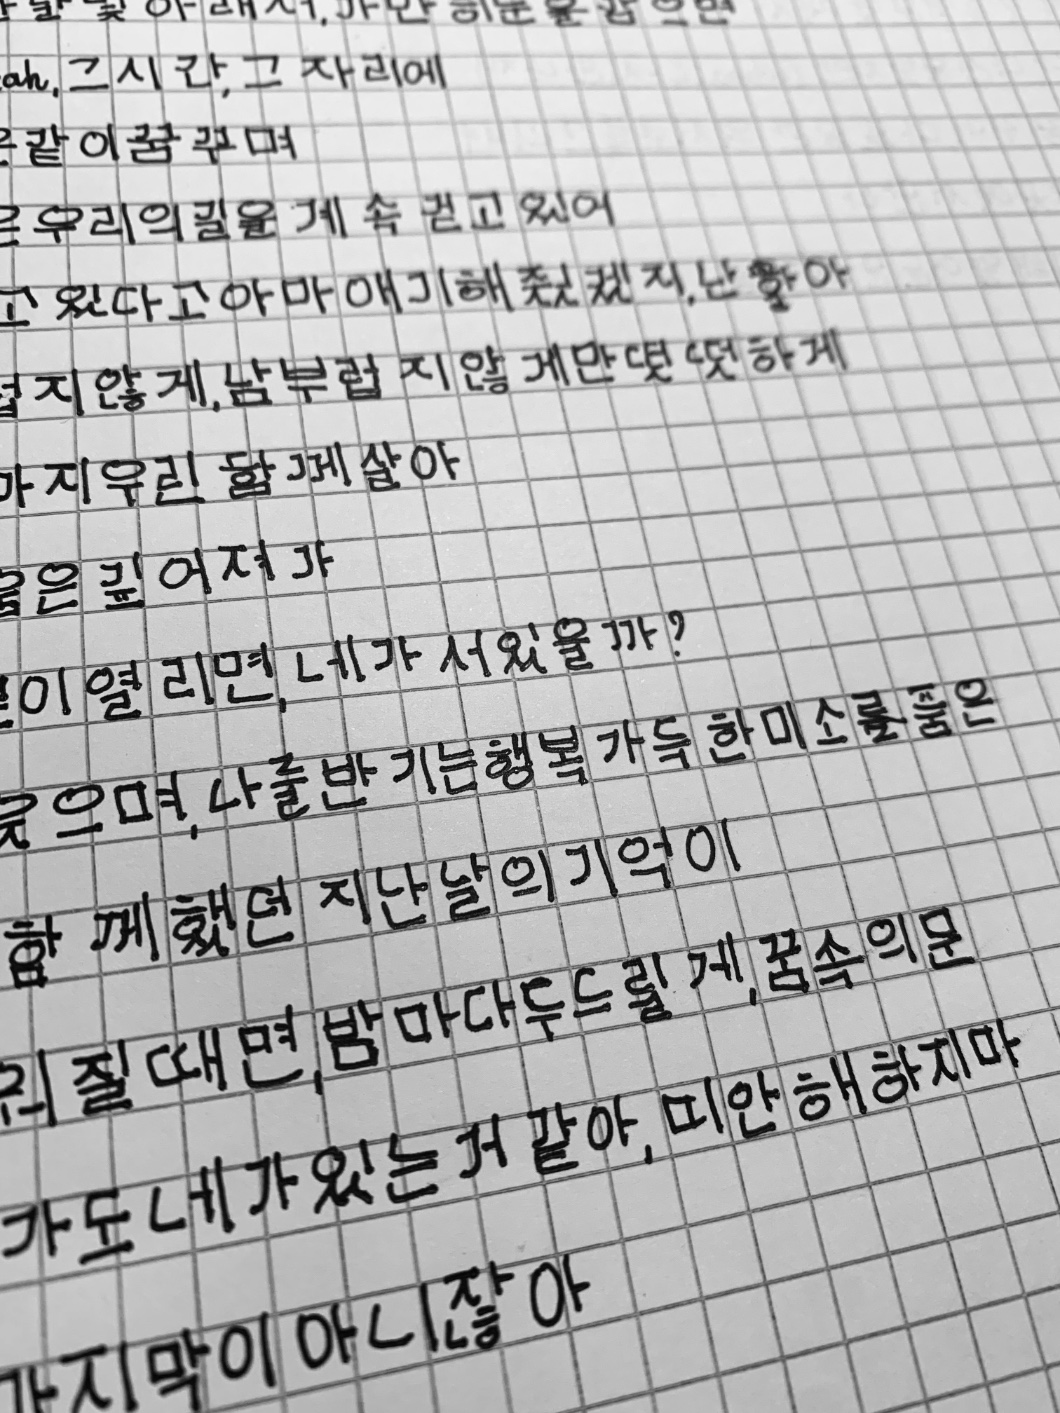 아래서, 가만히 눈을 감으면
그 시간, 그 자리에
같이 꿈꾸며
우리의 길을 계속 걷고 있어
있다고 아마 얘기해 줬겠지, 난
지 않게, 남부럽지 않게만 떳떳하게
우린 함께 살아
은 깊어져 가
이 열리면, 네가 서있을까?
으며, 나를 반기는 행복 가득한 미소를 품은
함께했던 지난날의 기억이
질 때면, 밤마다 두드릴게, 꿈속의 문
가도 네가 있는 거 같아, 미안해 하지마
지막이 아니잖아